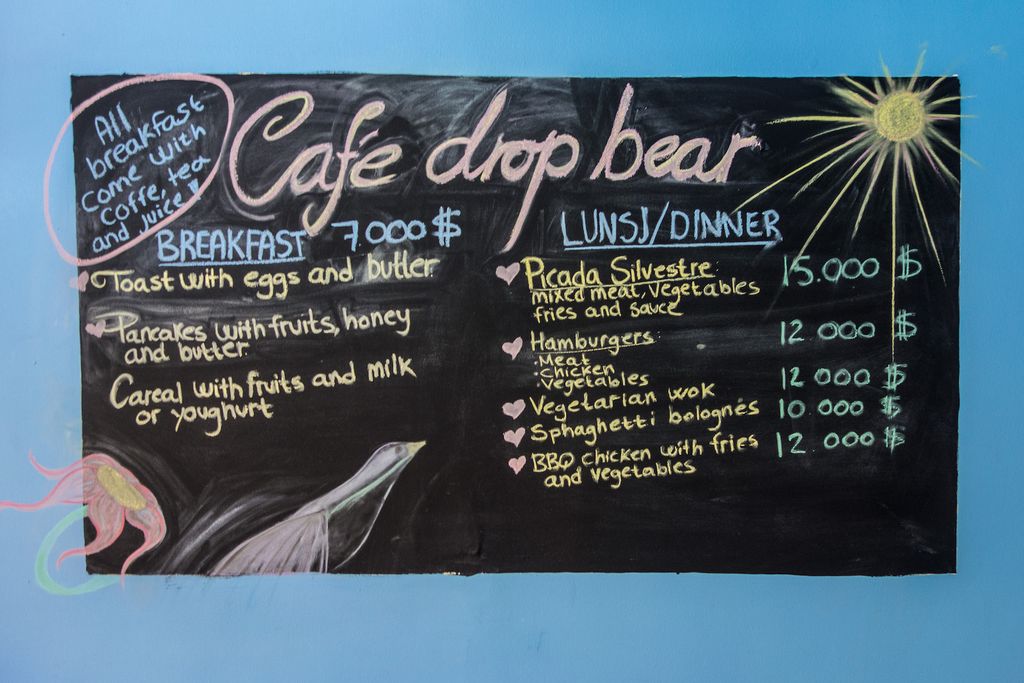 All
breakfast
come with
coffe, tea
and juice!!
Cafe drop bear
BREAKFAST 7.000 $
Toast with eggs and butter
Pancakes with fruits, honey
and butter
Careal with fruits and milk
or youghurt
LUNSJ/DINNER
Picada Silvestre 15.000 $
mixed meat, vegetables
fries and sauce
Hamburgers 12 000 $
· Meat
· Chicken
· Vegetables
Vegetarian wok 12 000 $
Sphaghetti bolognes 10 000 $
BBQ chicken with fries 12 000 $
and vegetables